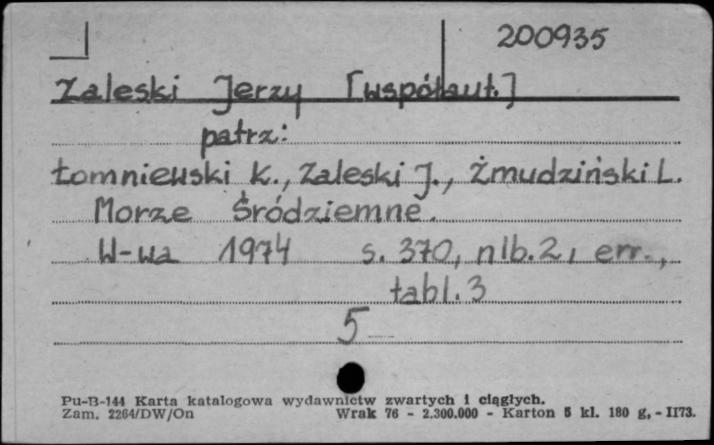 200935
Zaleski Jerzy [współaut.]
patrz:
Łomniewski K., Zaleski J., Żmudziński L.
Morze Śródziemne.
W-wa 1974 s. 370, nlb. 2, err.,
tabl. 3
5
Pu-B-144 Karta katalogowa wydawnictw zwartych i ciągłych.
Zam. 2264/DW/On Wrak 76 - 2.300.000 - Karton 5 kl. 180 g, - II73.